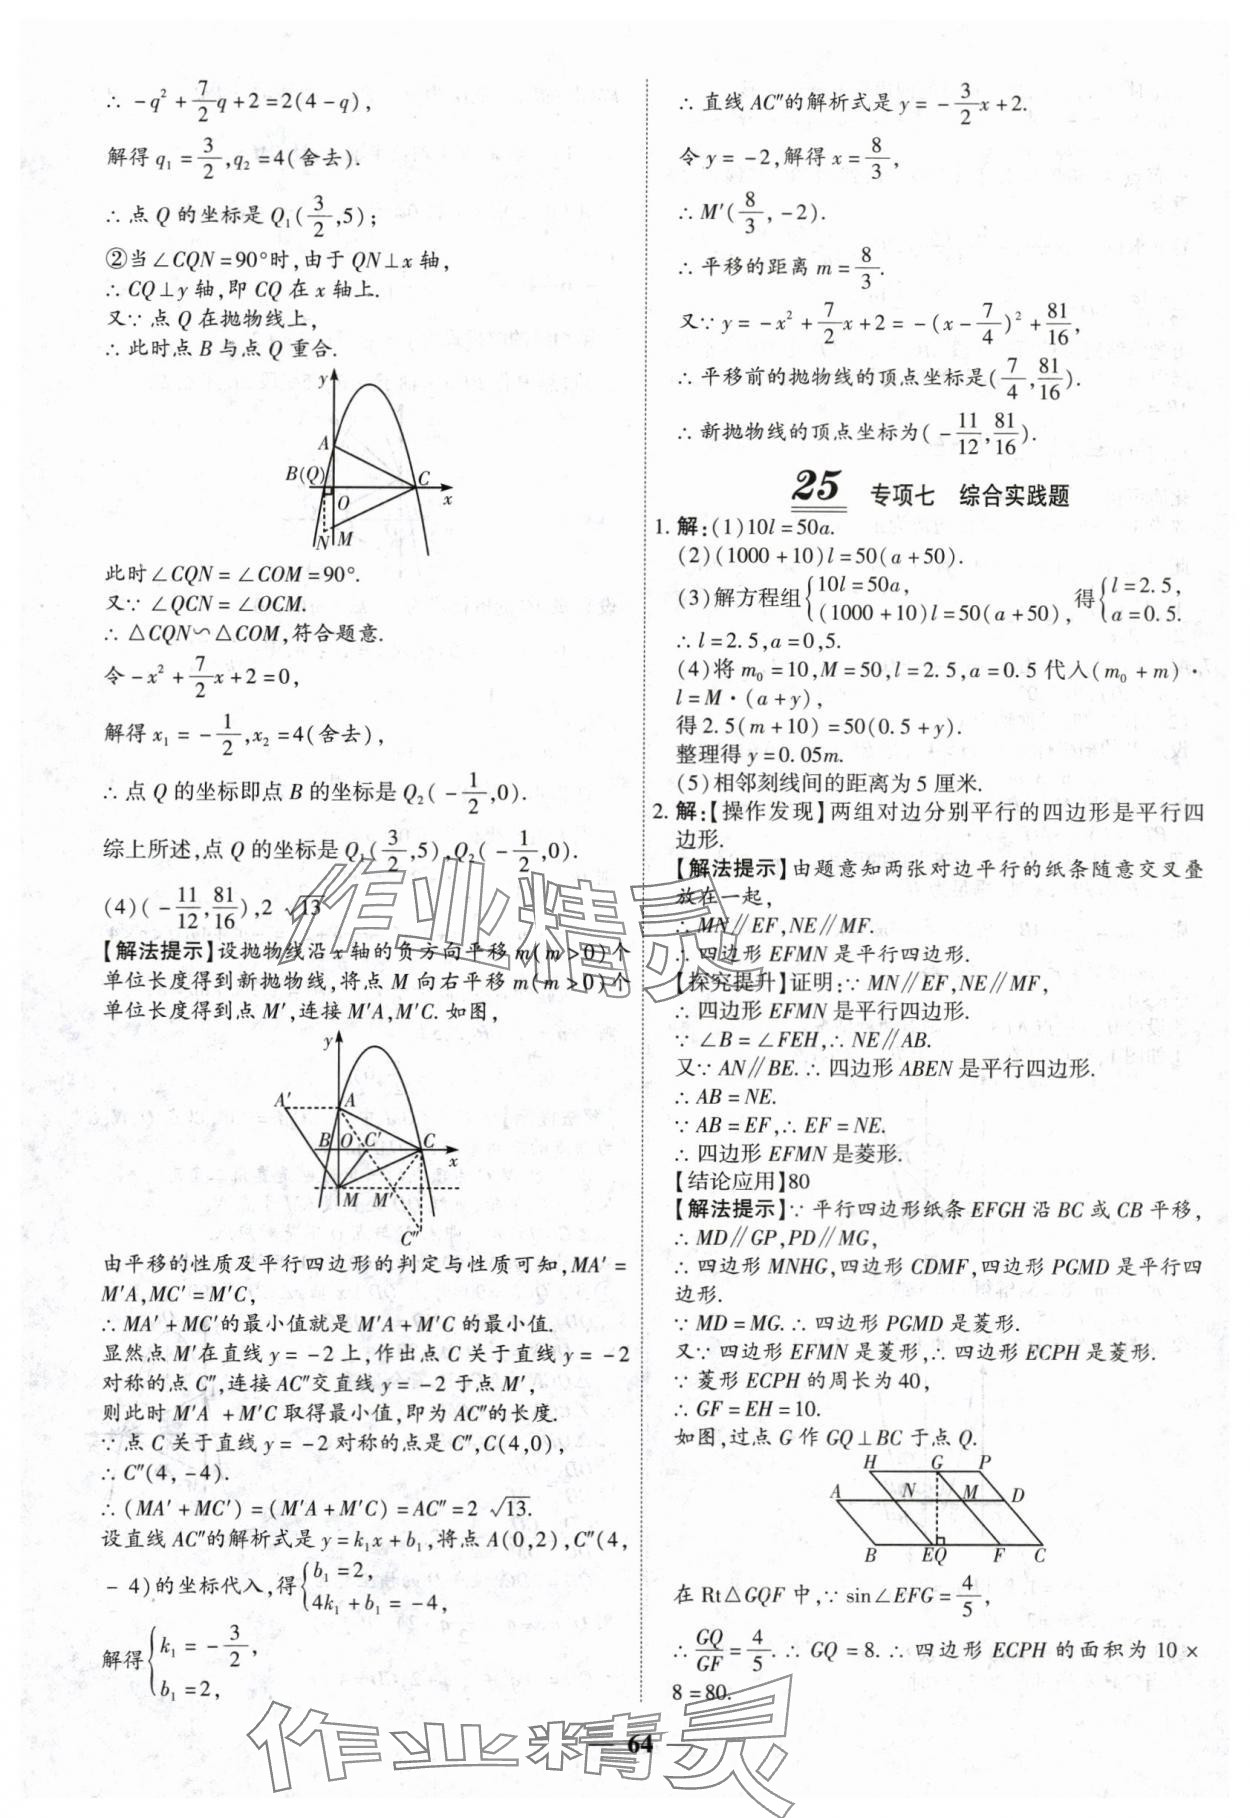 ∴ -q²+7/2q+2=2(4-q),
解得 q₁=3/2,q₂=4(舍去).
∴ 点 Q 的坐标是 Q₁(3/2,5);
②当∠CQN=90°时,由于 QN⊥x 轴,
∴ CQ⊥y 轴,即 CQ 在 x 轴上.
又∵ 点 Q 在抛物线上,
∴ 此时点 B 与点 Q 重合.
y
A
B(Q)
C
O
x
N
M
此时∠CQN=∠COM=90°.
又∵ ∠QCN=∠OCM.
∴ △CQN∽△COM,符合题意.
令-x²+7/2x+2=0,
解得 x₁=-1/2,x₂=4(舍去),
∴ 点 Q 的坐标即点 B 的坐标是 Q₂(-1/2,0).
综上所述,点 Q 的坐标是 Q₁(3/2,5),Q₂(-1/2,0).
(4)(-11/12,81/16),2√13
【解法提示】设抛物线沿 x 轴的负方向平移 m(m>0)个
单位长度得到新抛物线,将点 M 向右平移 m(m>0)个
单位长度得到点 M′,连接 M′A,M′C. 如图,
y
A′
A
B
O
C′
C
x
M
M′
C″
由平移的性质及平行四边形的判定与性质可知,MA′=
M′A,MC′=M′C,
∴ MA′+MC′的最小值就是 M′A+M′C 的最小值.
显然点 M′在直线 y=-2 上,作出点 C 关于直线 y=-2
对称的点 C″,连接 AC″交直线 y=-2 于点 M′,
则此时 M′A +M′C 取得最小值,即为 AC″的长度.
∵ 点 C 关于直线 y=-2 对称的点是 C″,C(4,0),
∴ C″(4,-4).
∴ (MA′+MC′)=(M′A+M′C)=AC″=2√13.
设直线 AC″的解析式是 y=k₁x+b₁,将点 A(0,2),C″(4,
-4)的坐标代入,得{b₁=2, 4k₁+b₁=-4,
解得{k₁=-3/2, b₁=2,
∴ 直线 AC″的解析式是 y=-3/2x+2.
令 y=-2,解得 x=8/3,
∴ M′(8/3,-2).
∴ 平移的距离 m=8/3.
又∵ y=-x²+7/2x+2=-(x-7/4)²+81/16,
∴ 平移前的抛物线的顶点坐标是(7/4,81/16).
∴ 新抛物线的顶点坐标为(-11/12,81/16).
25 专项七 综合实践题
1. 解:(1)10l=50a.
(2)(1000+10)l=50(a+50).
(3)解方程组{10l=50a, (1000+10)l=50(a+50), 得{l=2.5, a=0.5.
∴ l=2.5,a=0,5.
(4)将 m₀=10,M=50,l=2.5,a=0.5 代入(m₀+m)·
l=M·(a+y),
得 2.5(m+10)=50(0.5+y).
整理得 y=0.05m.
(5)相邻刻线间的距离为 5 厘米.
2. 解:【操作发现】两组对边分别平行的四边形是平行四
边形.
【解法提示】由题意知两张对边平行的纸条随意交叉叠
放在一起,
∴ MN∥EF,NE∥MF.
∴ 四边形 EFMN 是平行四边形.
【探究提升】证明:∵ MN∥EF,NE∥MF,
∴ 四边形 EFMN 是平行四边形.
∵ ∠B=∠FEH,∴ NE∥AB.
又∵ AN∥BE. ∴ 四边形 ABEN 是平行四边形.
∴ AB=NE.
∵ AB=EF,∴ EF=NE.
∴ 四边形 EFMN 是菱形.
【结论应用】80
【解法提示】∵ 平行四边形纸条 EFGH 沿 BC 或 CB 平移,
∴ MD∥GP,PD∥MG,
∴ 四边形 MNHG,四边形 CDMF,四边形 PGMD 是平行四
边形.
∵ MD=MG. ∴ 四边形 PGMD 是菱形.
又∵ 四边形 EFMN 是菱形,∴ 四边形 ECPH 是菱形.
∵ 菱形 ECPH 的周长为 40,
∴ GF=EH=10.
如图,过点 G 作 GQ⊥BC 于点 Q.
H
G
P
A
N
M
D
B
EQ
F
C
在 Rt△GQF 中,∵ sin∠EFG=4/5,
∴ GQ/GF=4/5. ∴ GQ=8. ∴ 四边形 ECPH 的面积为 10×
8=80.
作业精灵
作业精灵
64